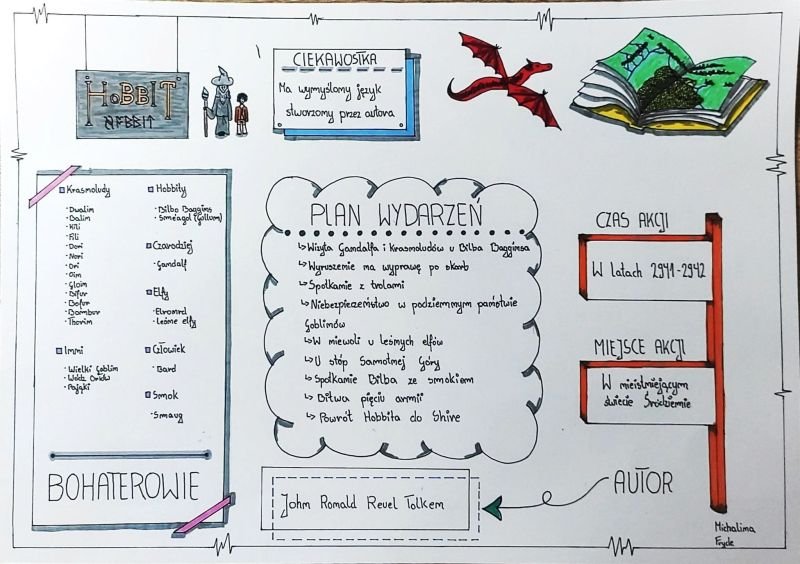 HOBBIT
CIEKAWOSTKA
Ma wymyślony język
stworzony przez autora
Krasnoludy
Dwalin
Balin
Kili
Fili
Dori
Nori
Ori
Oin
Gloin
Bifur
Bofur
Bombur
Thorin
Inni
Wielki Goblin
Wódz Orłów
Pająki
Hobbity
Bilbo Baggins
Smeagol (Gollum)
Czarodziej
Gandalf
Elfy
Elrond
Leśne elfy
Człowiek
Bard
Smok
Smaug
BOHATEROWIE
PLAN WYDARZEŃ
Wizyta Gandalfa i krasnoludów u Bilba Bagginsa
Wyruszenie na wyprawę po skarb
Spotkanie z trolami
Niebezpieczeństwo w podziemnym państwie
Goblinów
W niewoli u leśnych elfów
U stóp Samotnej Góry
Spotkanie Bilba ze smokiem
Bitwa pięciu armii
Powrót Hobbita do Shire
CZAS AKCJI
W latach 2941-2942
MIEJSCE AKCJI
W nieistniejącym
świecie Śródziemie
John Ronald Reuel Tolken
AUTOR
Michalina
Fryck